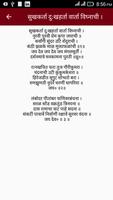 8:56 PM
सुखकर्ता दुःखहर्ता वार्ता विघ्नाची ।
सुखकर्ता दुःखहर्ता वार्ता विघ्नाची ।
नुरवी पुरवी प्रेम कृपा जयाची ॥
सर्वांगी सुंदर उटि शेंदुराची ।
कंठी झळके माळ मुक्ताफळांची ॥१॥
जय देव जय देव जय मंगलमूर्ती ।
दर्शनमात्रे मनकामना पुरती ॥धृ॥
रत्नखचित फरा तुज गौरीकुमरा ।
चंदनाची उटी कुंकुमकेशरा ।
हिरे जडित मुकुट शोभतो बरा ।
रुणझुणती नूपुरे चरणी घागरिया ।
जय देव जय देव ॥२॥
लंबोदर पीतांबर फणिवरबंधना ।
सरळ सोंड वक्रतुंड त्रिनयना ।
दास रामाचा वाट पाहे सदना ।
संकटी पावावे निर्वाणी रक्षावे सुरवरवंदना ।
जय देव जय देव ॥३॥